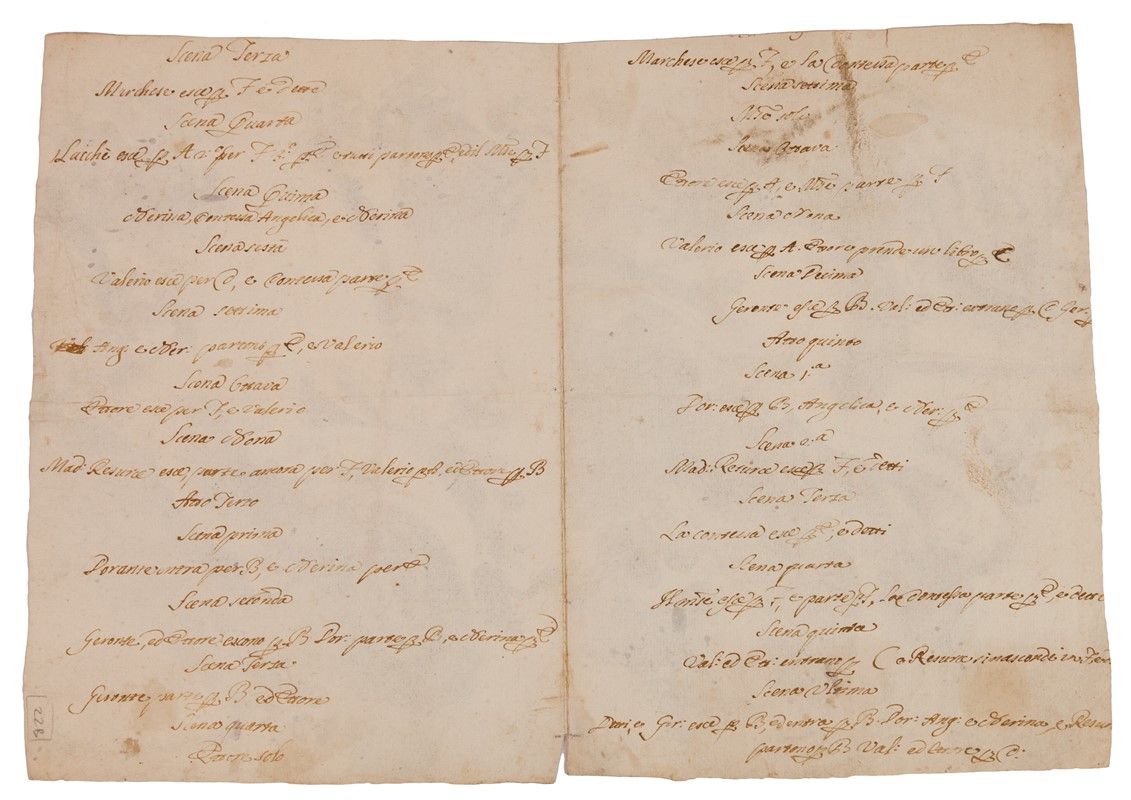 Scena Terza
Marchese esce p F e dette
Scena Quarta
esce p A per F e tutti partono p ed il p F
Scena Quinta
Nerina, Contessa Angelica, e Nerina
Scena sesta
Valerio esce per C, e Contessa parte p E
Scena settima
Ang: e Ner: partono p E, e Valerio
Scena Ottava
Ettore esce per F, e Valerio
Scena Nona
Mad: Resurce esce, parte ancora per F, Valerio p ed Ettore p B
Atto Terzo
Scena prima
Dorante entra per B, e Nerina per E
Scena seconda
Geronte, ed Ettore escono p B Dor: parte p B, e Nerina p E
Scena Terza
Geronte parte p B ed Ettore
Scena quarta
Ettore solo
228
Marchese esce p F, e la Contessa parte p E
Scena settima
solo
Scena Ottava
Ettore esce p A, e parte p F
Scena Nona
Valerio esce p A. Ettore prende un libro p E
Scena Decima
Geronte esce p B. Val: ed Et: entrano p C Ger:
Atto quinto
Scena 1.a
Dor: esce p B, Angelica, e Ner: p
Scena 2.a
Mad: Resurce esce p F e detti
Scena Terza
La contessa esce p E, e detti
Scena quarta
esce p F, e parte p F, La Contessa parte p E, e dette
Scena quinta
Val: ed Et: entrano p C e Resurce si nasconde in
Scena Ultima
Detti, e Ger: esce p B, ed entra p B. Dor: Ang: e Nerina, e
partono p B. Val: ed Ettore p C.